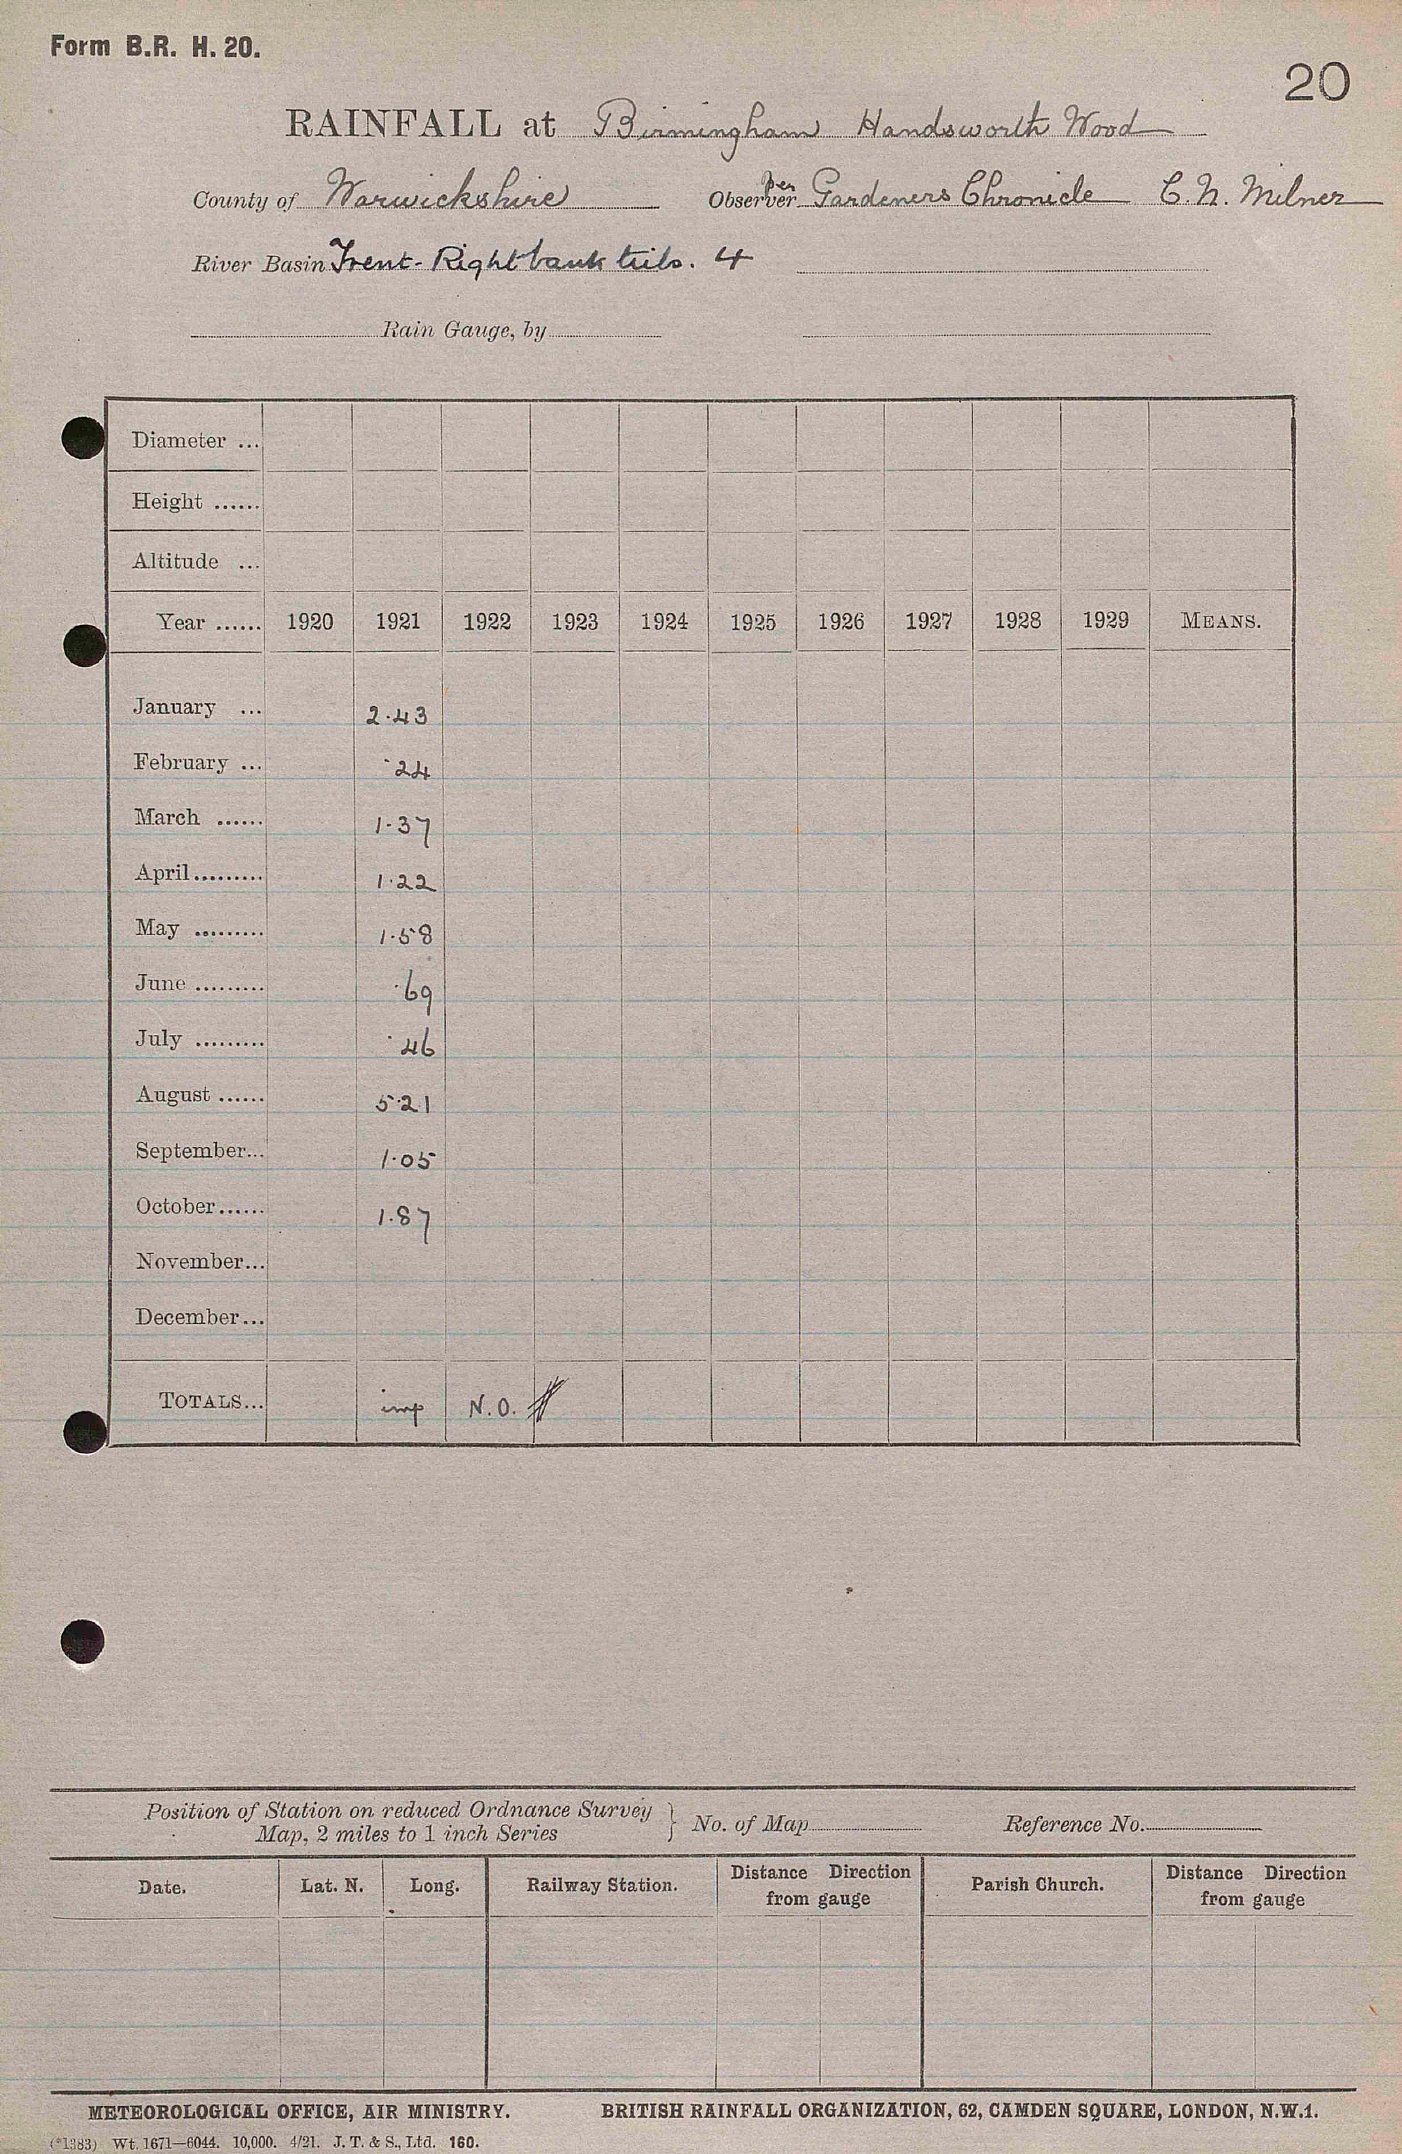 Form B.R. H. 20.
20
RAINFALL at Birmingham Handsworth Wood
County of Warwickshire Observer per Gardeners Chronicle C. N. Milner
River Basin Trent - Right bank tribs. 4
Rain Gauge, by
Diameter ...
Height ......
Altitude ...
Year ...... 1920 1921 1922 1923 1924 1925 1926 1927 1928 1929 MEANS.
January ... 2.43
February ... .24
March ...... 1.37
April......... 1.22
May ......... 1.58
June ......... .69
July ......... .46
August ...... 5.21
September... 1.05
October...... 1.87
November...
December...
TOTALS... imp N.O.
Position of Station on reduced Ordnance Survey
Map, 2 miles to 1 inch Series } No. of Map Reference No.
Date. Lat. N. Long. Railway Station. Distance Direction from gauge Parish Church. Distance Direction from gauge
METEOROLOGICAL OFFICE, AIR MINISTRY. BRITISH RAINFALL ORGANIZATION, 62, CAMDEN SQUARE, LONDON, N.W.1.
(*1383) Wt. 1671—6044. 10,000. 4/21. J. T. & S., Ltd. 160.